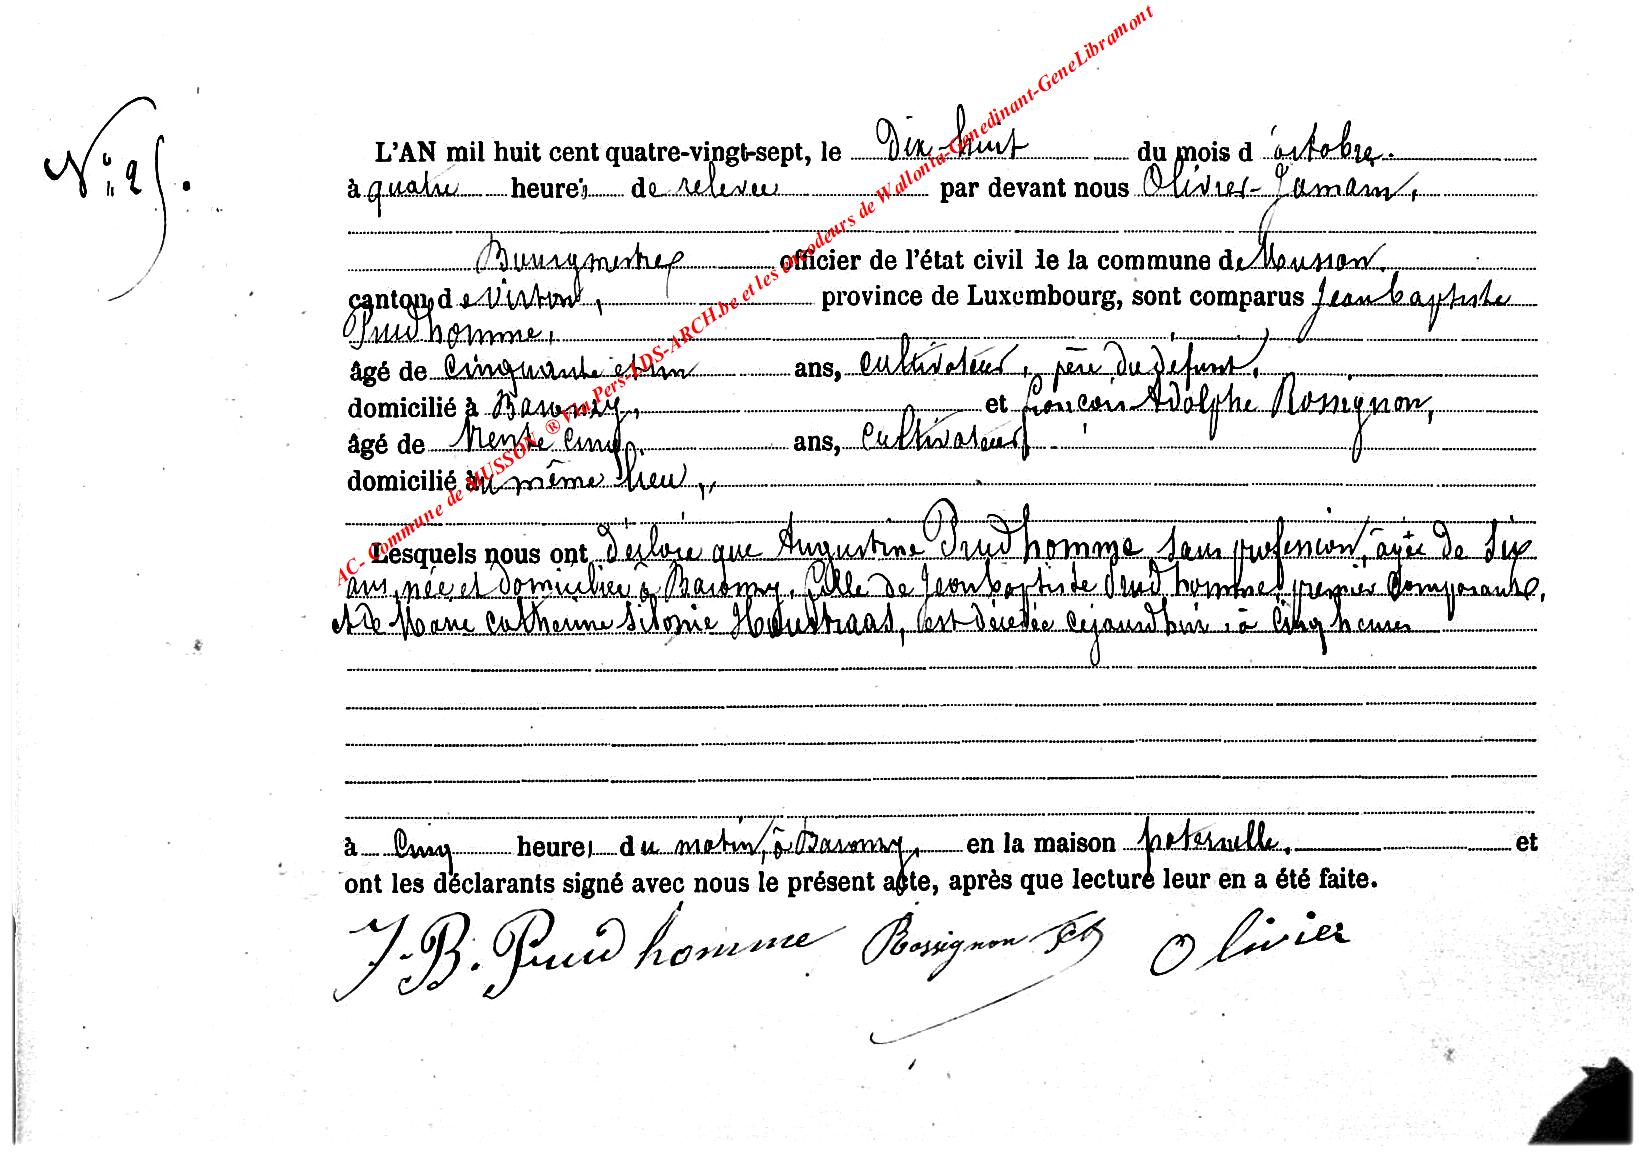 N° 25.
L'AN mil huit cent quatre-vingt-sept, le Dix-huit du mois d'octobre.
à quatre heures de relevée par devant nous Olivier-Jamam,
Bourgmestre officier de l'état civil de la commune de Musson.
canton de Virton, province de Luxembourg, sont comparus Jean baptiste
Prud'homme,
âgé de cinquante et un ans, cultivateur, père du défunt,
domicilié à Baranzy, et françois Adolphe Rossignon,
âgé de trente cinq ans, cultivateur
domicilié au même lieu,
Lesquels nous ont déclaré que Augustine Prud'homme sans profession, âgée de six
ans, née et domiciliée à Baranzy, fille de Jean baptiste Prud'homme premier comparant,
et de Marie catherine Sidonie Houstraas, est décédée cejourd'hui à cinq heures
à Cinq heures du matin, à Baranzy, en la maison paternelle. et
ont les déclarants signé avec nous le présent acte, après que lecture leur en a été faite.
J. B. Prud'homme Rossignon Olivier
AC- Commune de MUSSON ® Via Pers-LDS-ARCH.be et les encodeurs de Wallonia-Genedinant-GeneLibramont